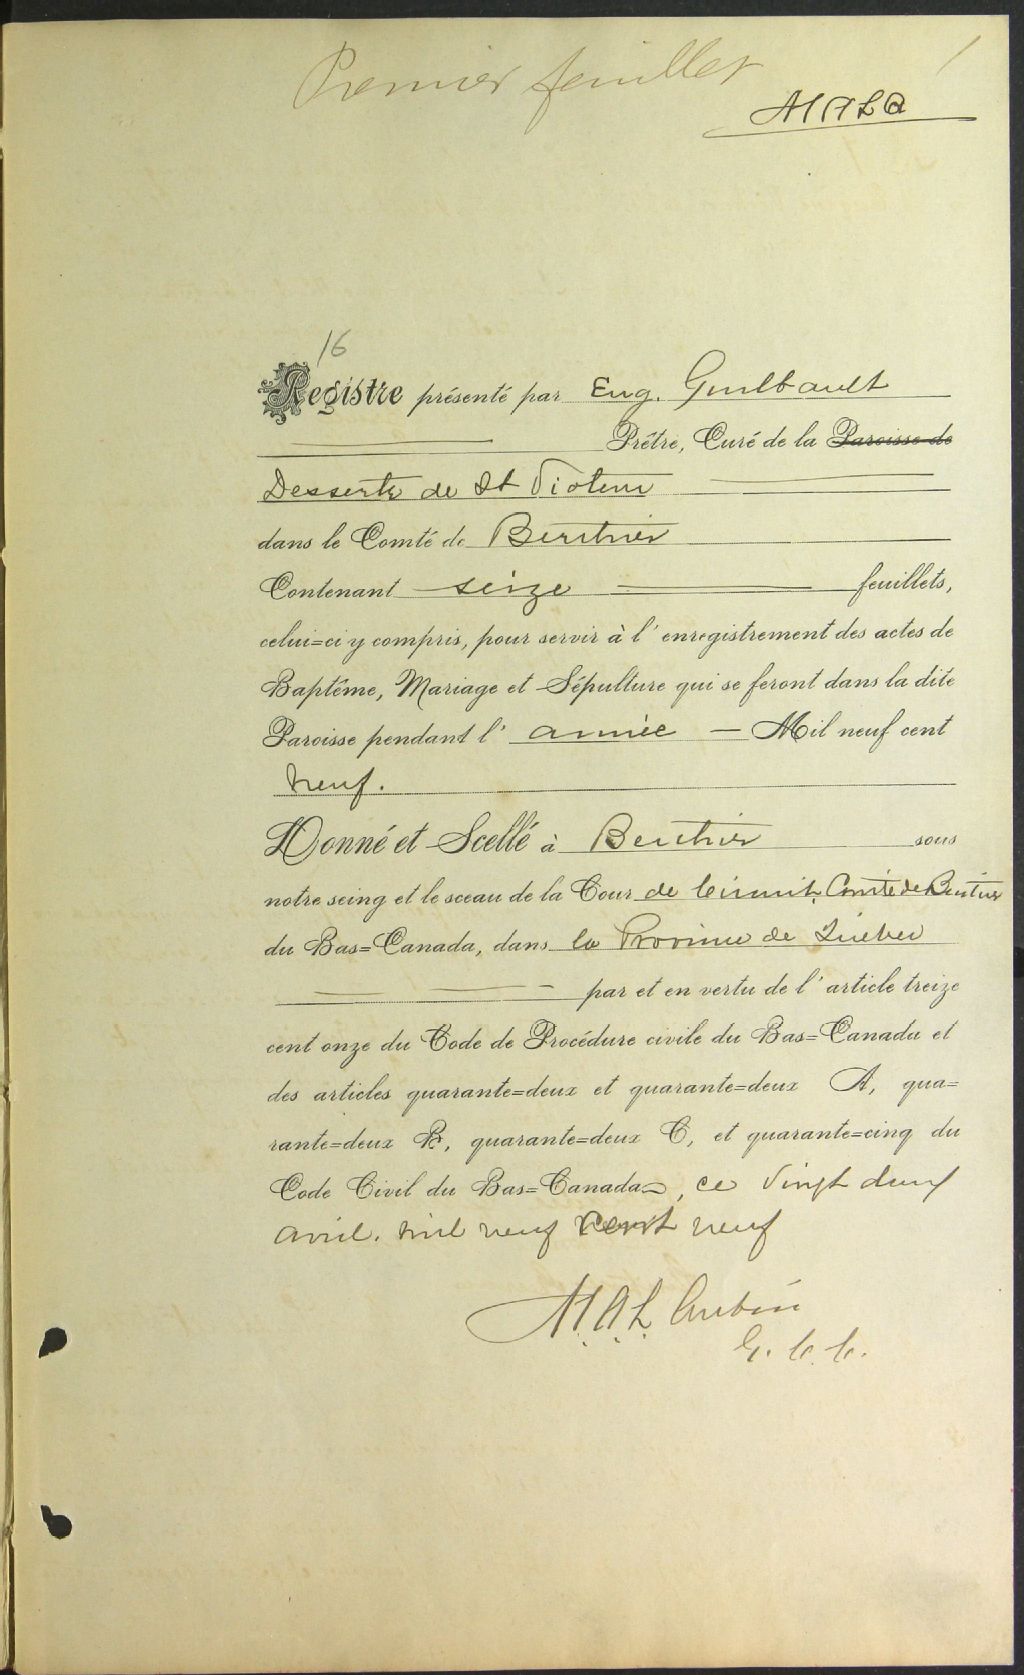 Premier feuillet
1
MALA
16
Registre présenté par Eug. Guilbault
Prêtre, Curé de la Paroisse de
Desserte de St Viateur
dans le Comté de Berthier
Contenant seize feuillets,
celui=ci y compris, pour servir à l'enregistrement des actes de
Baptême, Mariage et Sépulture qui se feront dans la dite
Paroisse pendant l'année — Mil neuf cent
neuf.
Donné et Scellé à Berthier sous
notre seing et le sceau de la Cour de Circuit, Comté de Berthier
du Bas=Canada, dans la Province de Québec
par et en vertu de l'article treize
cent onze du Code de Procédure civile du Bas=Canada et
des articles quarante=deux et quarante=deux A, qua=
rante=deux B, quarante=deux C, et quarante=cinq du
Code Civil du Bas=Canada, ce vingt deux
avril. mil neuf cent neuf
M.A.L. Aubin
G. C. C.